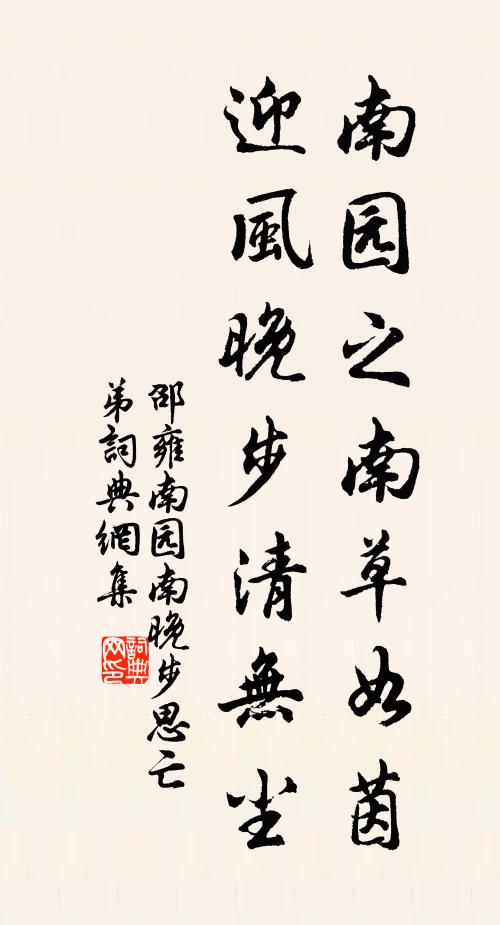 南园之南草如茵
迎風晚步清無尘
邵雍南园南晚步思亡
弟詞典網集
詞典
网印